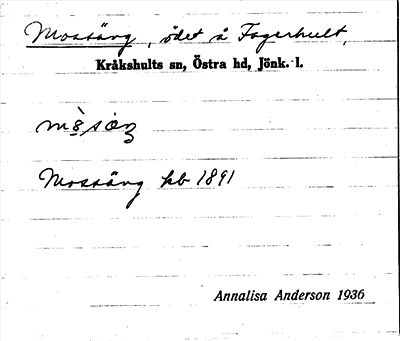 Mossäng, ödet å Fagerhult,
Kråkshults sn, Östra hd, Jönk. l.
Mossäng kb 1891
Annalisa Anderson 1936